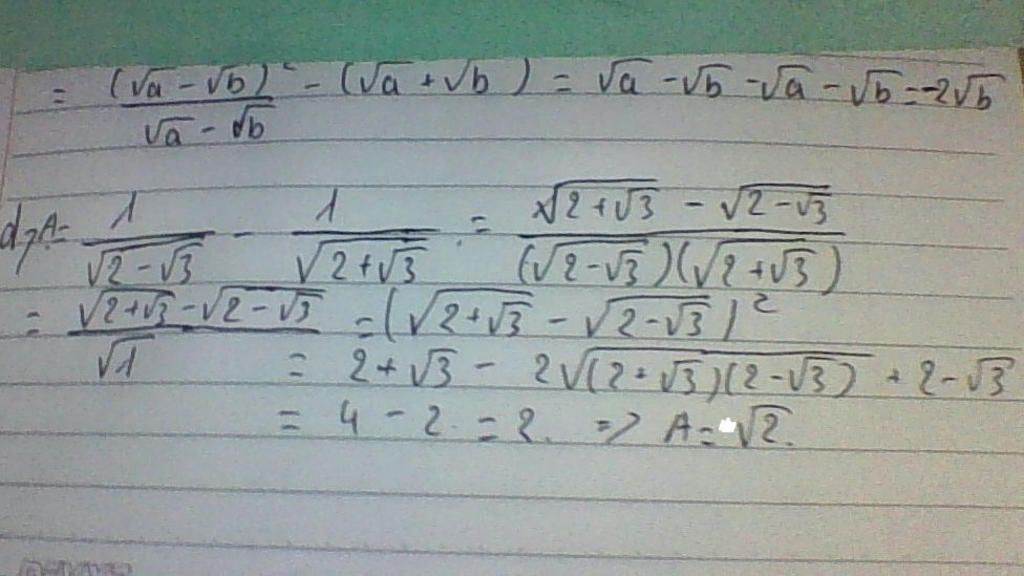 = (√a - √b)² / (√a - √b) - (√a + √b) = √a - √b - √a - √b = -2√b
d, A = 1/√(2-√3) - 1/√(2+√3) = (√(2+√3) - √(2-√3)) / ((√(2-√3))(√(2+√3)))
= (√(2+√3) - √(2-√3)) / √1 = (√(2+√3) - √(2-√3))²
= 2+√3 - 2√((2+√3)(2-√3)) + 2-√3
= 4 - 2. = 2. => A = √2.